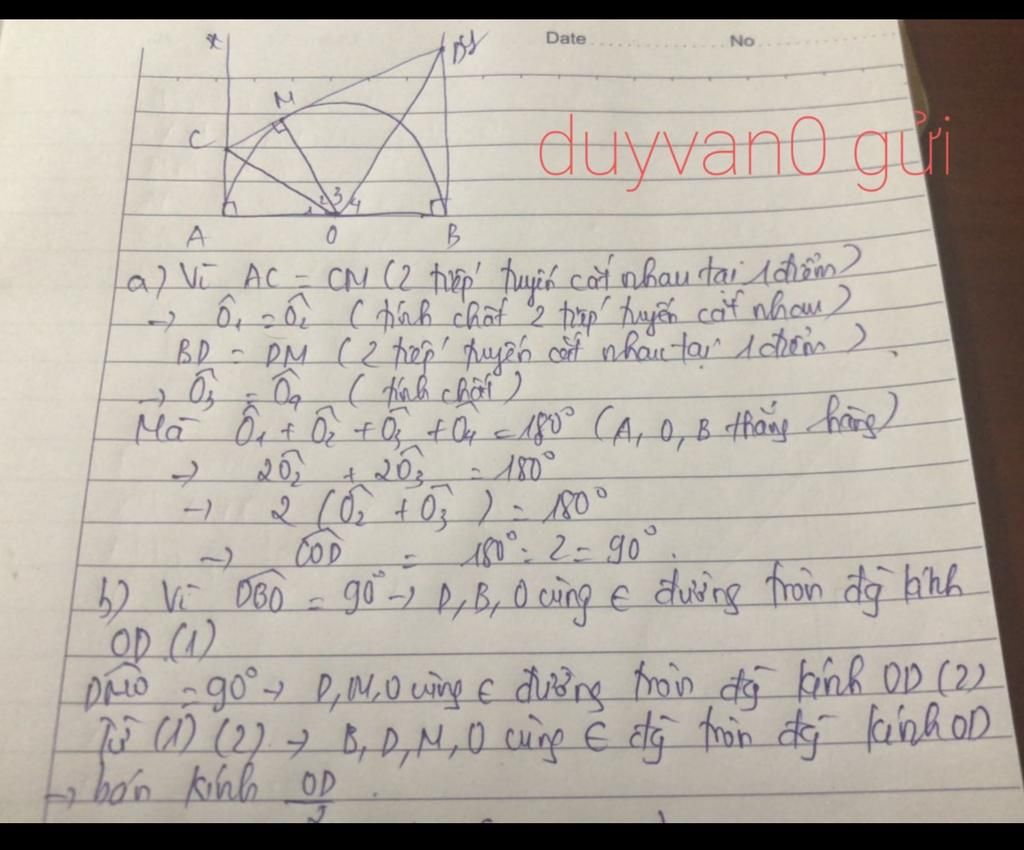 Date No
x
D y
M
C
2 3 4
A O B
duyvan0 gửi
a) Vì AC = CM (2 tiếp tuyến cắt nhau tại 1 điểm)
→ Ô₁ = Ô₂ (tính chất 2 tiếp tuyến cắt nhau)
BD = DM (2 tiếp tuyến cắt nhau tại 1 điểm).
→ Ô₃ = Ô₄ (tính chất)
Mà Ô₁ + Ô₂ + Ô₃ + Ô₄ = 180° (A, O, B thẳng hàng)
→ 2Ô₂ + 2Ô₃ = 180°
→ 2 (Ô₂ + Ô₃) = 180°
→ COD = 180° : 2 = 90°.
b) Vì DBO = 90° → D, B, O cùng ∈ đường tròn đg kính
OD (1)
DMO = 90° → D, M, O cùng ∈ đường tròn đg kính OD (2)
Từ (1) (2) → B, D, M, O cùng ∈ đg tròn đg kính OD
→ bán kính OD/2.